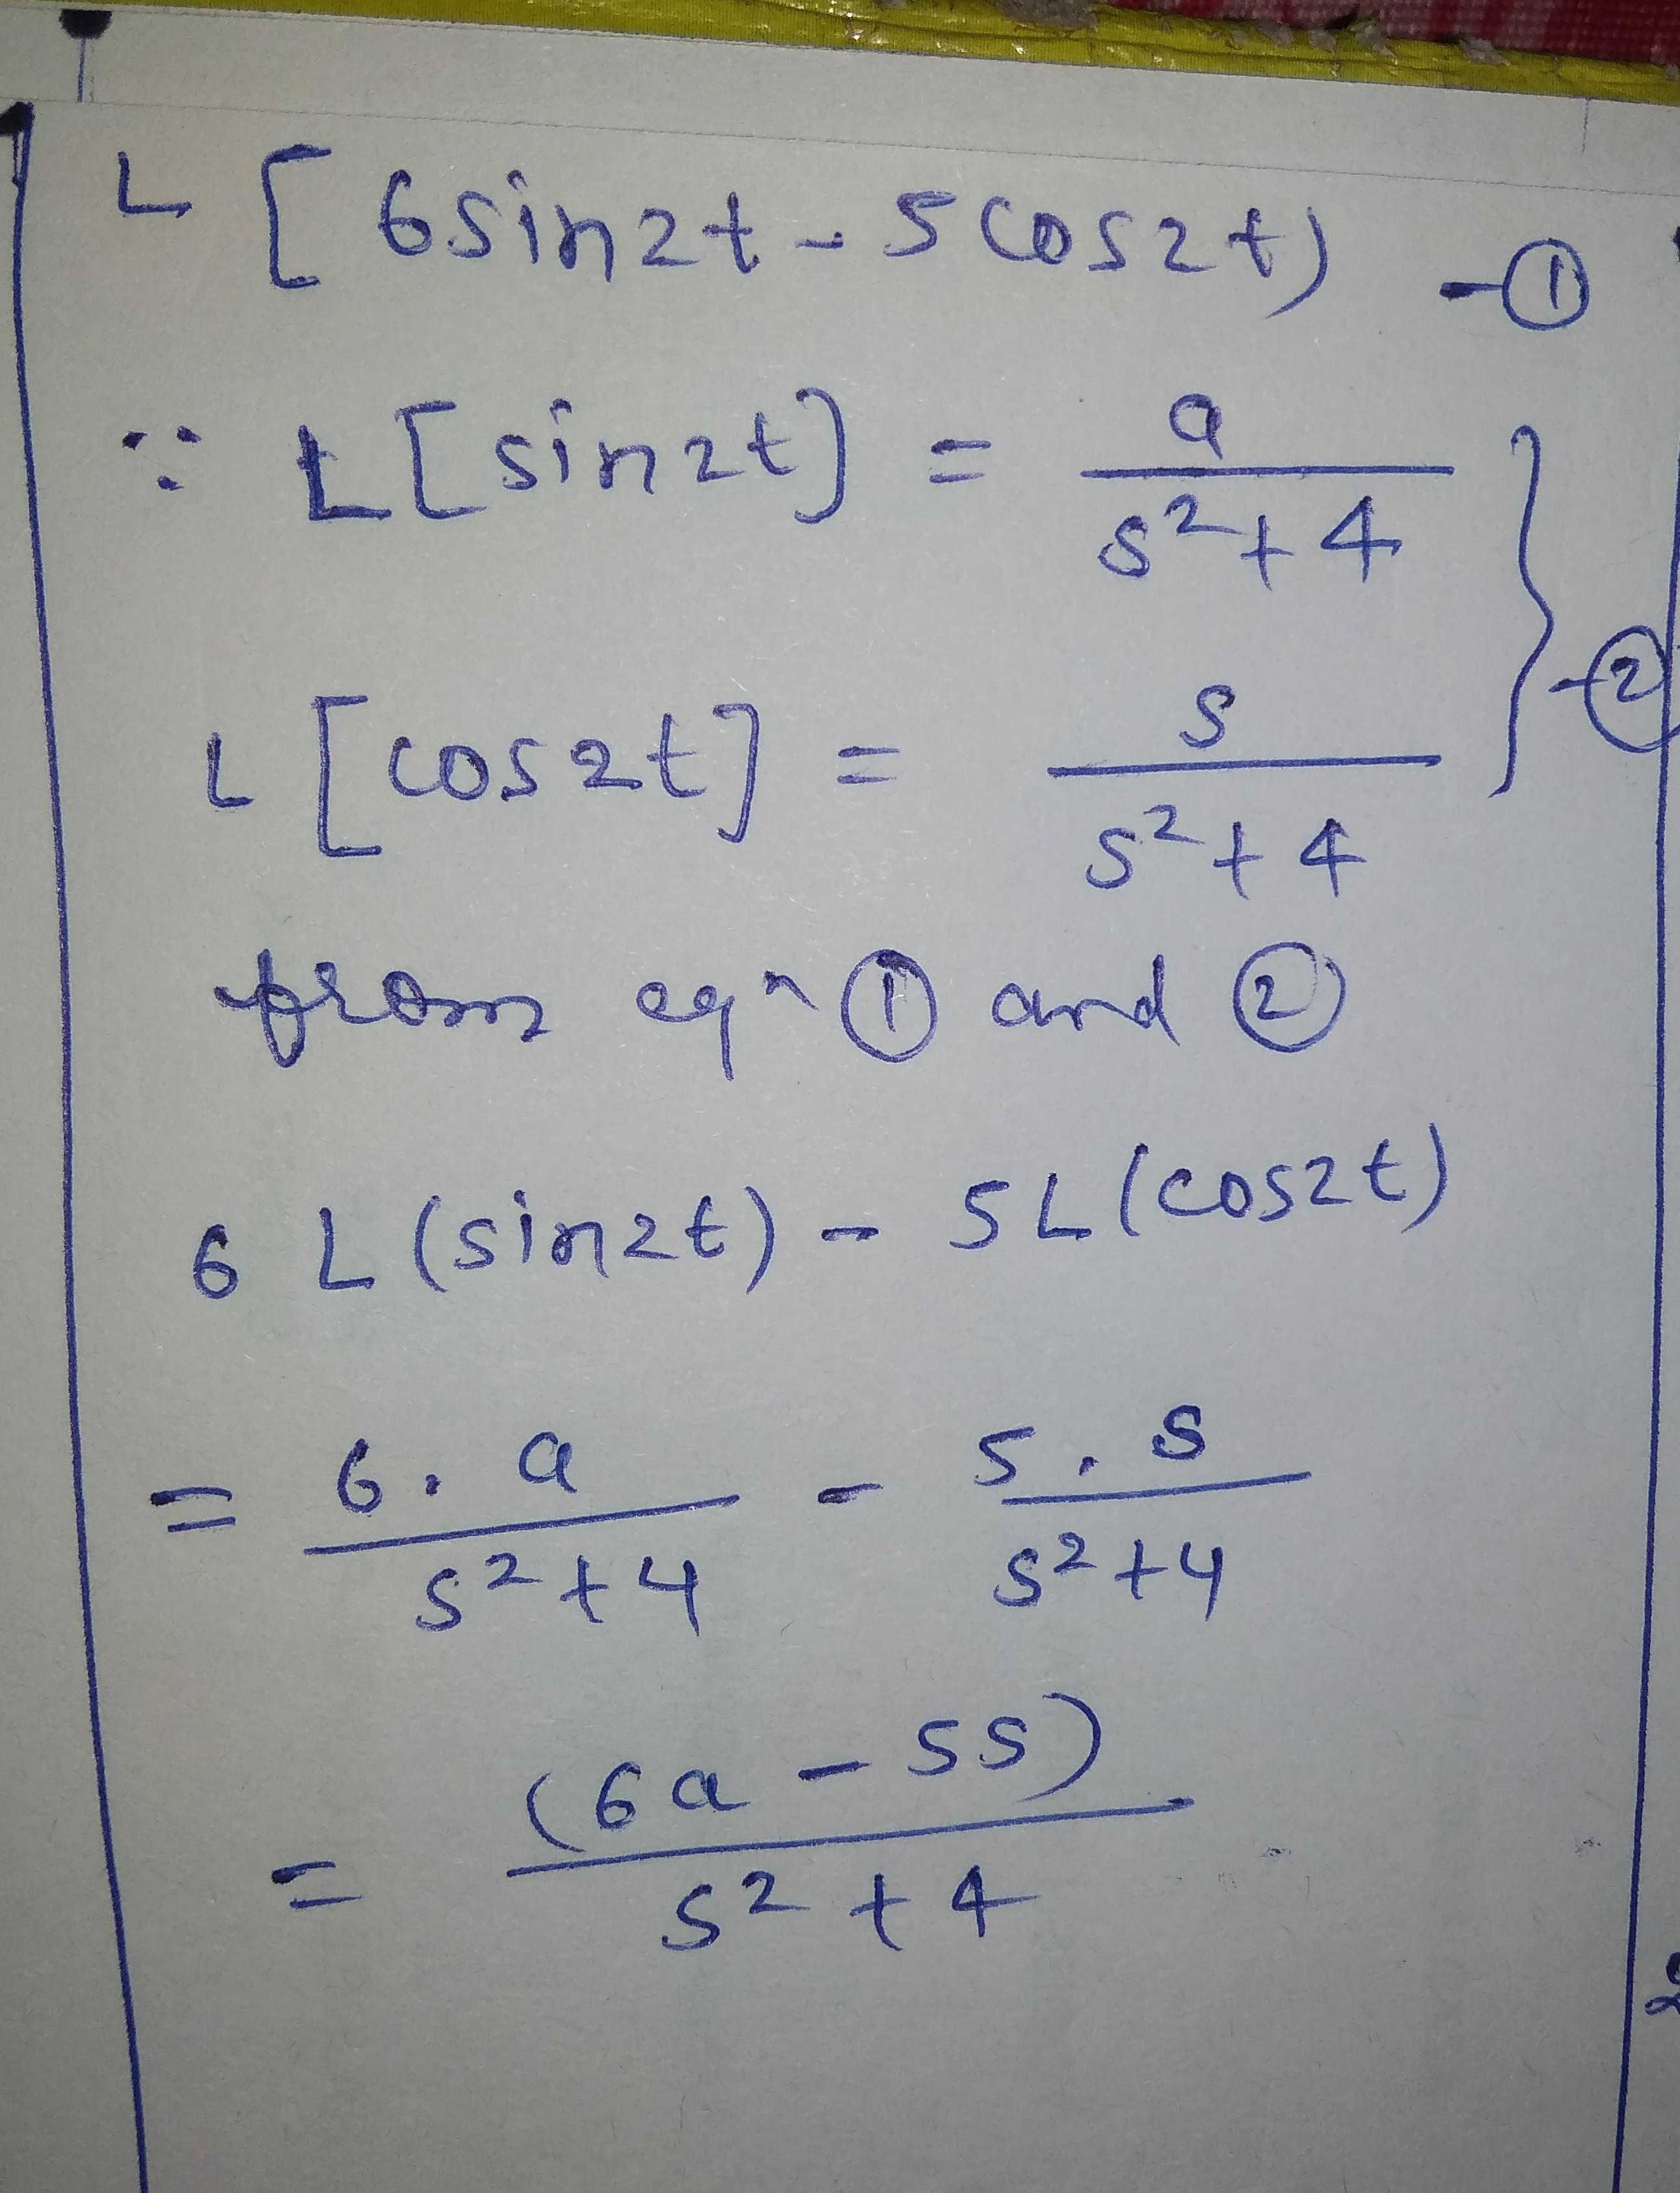 L [ 6sin2t - 5cos2t) - ①
∵ L[sin2t] = a / s²+4
L [cos2t] = s / s²+4 } - ②
from eqn ① and ②
6 L (sin2t) - 5L(cos2t)
= 6. a / s²+4 - 5. s / s²+4
= (6a - 5s) / s²+4